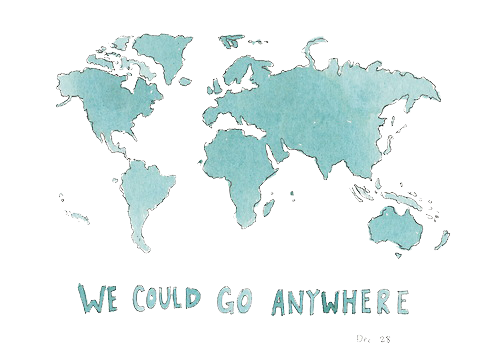 WE COULD GO ANYWHERE
Dec 28